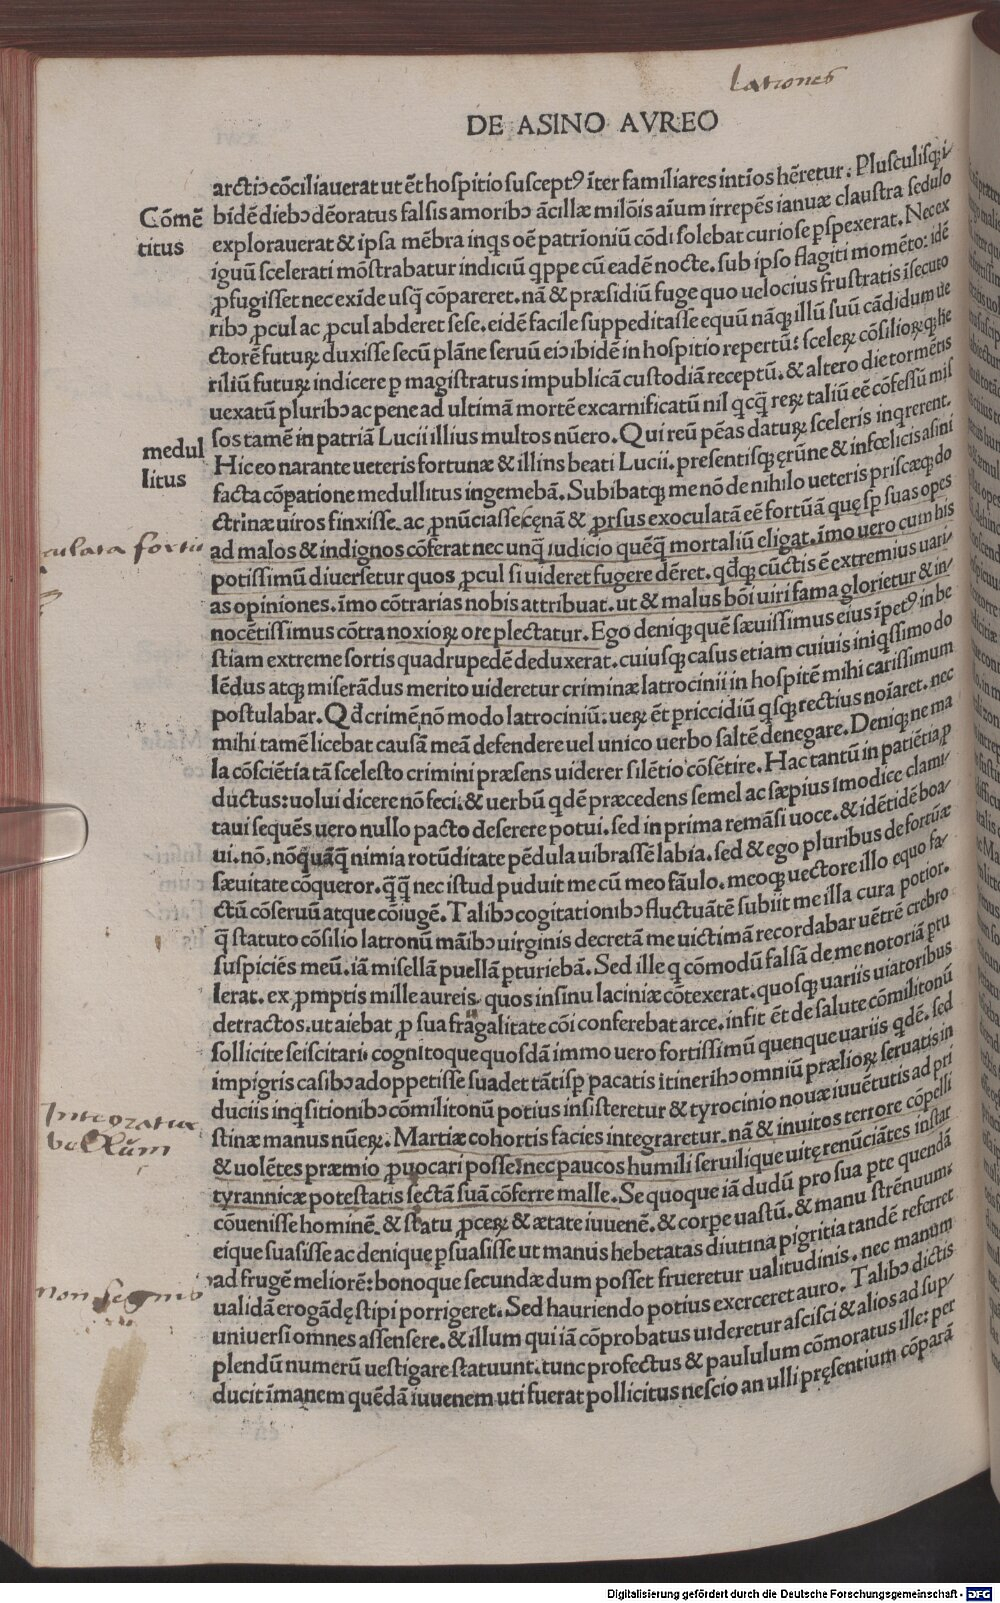 latrones
DE ASINO AVREO
arctiɔ cōciliauerat ut ēt hospitio suscept⁹ īter familiares intīos hēretur. Plusculisqꝫ i/
Cōmē
titus
bidē diebɔ dēoratus falsis amoribɔ ācillæ milōis aīum irrepēs ianuæ claustra sedulo
explorauerat & ipsa mēbra inqs oē patrioniū cōdi solebat curiose ꝑspexerat. Nec ex
iguū scelerati mōstrabatur indiciū qppe cū eadē nocte. sub ipso flagiti momēto: idē
ꝓfugisset nec exīde usq̄ cōpareret. nā & præsidiū fuge quo uelocius frustratis īsecuto
ribɔ ꝓcul ac ꝓcul abderet sese. eidē facile suppeditasse equū nāqꝫ illū suū cādidum ue
ctorē futuꝝ duxisse secū plāne seruū eiɔ ibidē in hospitio repertū: sceleꝝ cōsilioꝝqꝫ he
riliū futuꝝ indicere ꝑ magistratus impublicā custodiā receptū. & altero die tormētis
uexatū pluribɔ ac pene ad ultimā mortē excarnificatū nil qcq̄ reꝝ taliū eē cōfessū mis
sos tamē in patriā Lucii illius multos nūero. Qui reū pēas datuꝝ sceleris inqrerent.
medul
litus
Hic eo narante ueteris fortunæ & illins beati Lucii. presentisqꝫ ęrūne & infœlicis asini
facta cōꝑatione medullitus ingemebā. Subibatqꝫ me nō de nihilo ueteris priscæqꝫ do
ctrinæ uiros finxisse. ac ꝓnūciasse cęnā & ꝓrsus exoculatā eē fortūā quę sꝑ suas opes
culata fortu
ad malos & indignos cōferat nec unq̄ iudicio quēq̄ mortaliū eligat. īmo uero cum his
potissimū diuersetur quos ꝓcul si uideret fugere dēret. qđqꝫ cūctis ē extremius uari/
as opiniones. īmo cōtrarias nobis attribuat. ut & malus bōi uiri fama glorietur & in/
nocētissimus cōtra noxioꝝ ore plectatur. Ego deniqꝫ quē sæuissimus eius īpet⁹ in be
stiam extreme sortis quadrupedē deduxerat. cuiusqꝫ casus etiam cuiuis iniqssimo do
lēdus atqꝫ miserādus merito uideretur criminæ latrocinii in hospitē mihi carissimum
postulabar. Qđ crimē nō modo latrociniū: ueꝝ ēt ꝑriccidiū qsqꝫ rectius noīaret. nec
mihi tamē licebat causā meā defendere uel unico uerbo saltē denegare. Deniqꝫ ne ma
la cōsciētia tā scelesto crimini præsens uiderer silētio cōsētire. Hac tantū in patiētia ꝑ
ductus: uolui dicere nō feci. & uerbū qdē præcedens semel ac sæpius īmodice clami/
taui sequēs uero nullo pacto deserere potui. sed in prima remāsi uoce. & idētidē boa/
ui. nō. nō quāq̄ nimia rotūditate pēdula uibrassē labia. sed & ego pluribus de fortūæ
sæuitate cōqueror. q̄q̄ nec istud puduit me cū meo fāulo. meoqꝫ uectore illo equo fa/
ctū cōseruū atque cōiugē. Talibɔ cogitationibɔ fluctuātē subiit me illa cura potior.
q̄ statuto cōsilio latronū māibɔ uirginis decretā me uictimā recordabar uētrē crebro
suspiciēs meū. iā misellā puellā ꝑturiebā. Sed ille q cōmodū falsā de me notoriā ꝑtu
lerat. ex ꝓmptis mille aureis. quos insinu laciniæ cōtexerat. quosqꝫ uariis uiatoribus
detractos. ut aiebat ꝓ sua fragalitate cōi conferebat arce. infit ēt de salute cōmilitonū
sollicite seiscitari. cognitoque quosdā immo uero fortissimū quenque uariis qdē. sed
impigris casibɔ adoppetisse suadet tātisꝑ pacatis itineribɔ omniū prælioꝝ seruatis in
duciis inqsitionibɔ cōmilitonū potius insisteretur & tyrocinio nouæ iuuētutis ad pri
Integratur
bellum
stinæ manus nūeꝝ. Martiæ cohortis facies integraretur. nā & inuitos terrore cōpelli
& uolētes præmio ꝓuocari posse: nec paucos humili seruilique uitę renūciātes instar
tyrannicæ potestatis sectā suā cōferre malle. Se quoque iā dudū pro sua ꝑte quendā
cōuenisse hominē. & statu ꝓceꝝ & ætate iuuenē. & corꝑe uastū. & manu strēnuum:
eique suasisse ac denique ꝑsuasisse ut manus hebetatas diutina pigritia tandē referret
non segnis
ad frugē meliorē: bonoque secundæ dum posset frueretur ualitudinis. nec manum
ualidā erogādę stipi porrigeret. Sed hauriendo potius exerceret auro. Talibɔ dictis
uniuersi omnes assensere. & illum qui iā cōprobatus uideretur ascisci & alios ad sup/
plendū numerū uestigare statuunt. tunc profectus & paululum cōmoratus ille: per
ducit īmanem quēdā iuuenem uti fuerat pollicitus nescio an ulli pręsentium cōparā
Digitalisierung gefördert durch die Deutsche Forschungsgemeinschaft - DFG